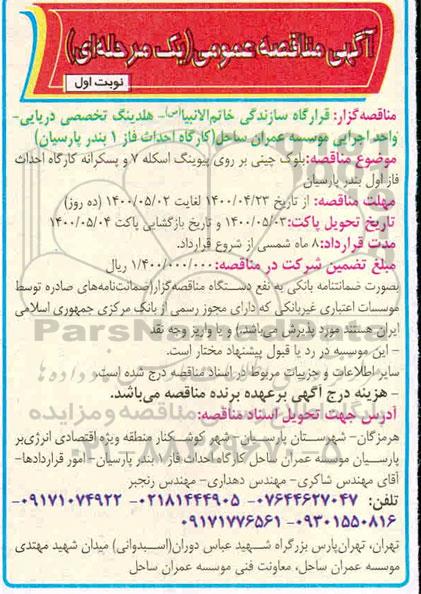 آگهی مناقصه عمومی(یک مرحله‌ای)
نوبت اول
مناقصه‌گزار: قرارگاه سازندگی خاتم‌الانبیا(ص)- هلدینگ تخصصی دریایی-
واحد اجرایی موسسه عمران ساحل(کارگاه احداث فاز ۱ بندر پارسیان)
موضوع مناقصه:بلوک چینی بر روی پیوینگ اسکله ۷ و پسکرانه کارگاه احداث
فاز اول بندر پارسیان
مهلت مناقصه: از تاریخ ۱۴۰۰/۰۴/۲۳ لغایت ۱۴۰۰/۰۵/۰۲ (ده روز)
تاریخ تحویل پاکت:۱۴۰۰/۰۵/۰۳ و تاریخ بازگشایی پاکت ۱۴۰۰/۰۵/۰۴
مدت قرارداد:۸ ماه شمسی از شروع قرارداد.
مبلغ تضمین شرکت در مناقصه:۱/۴۰۰/۰۰۰/۰۰۰ ریال
بصورت ضمانتنامه بانکی به نفع دستگاه مناقصه‌گزار(ضمانت‌نامه‌های صادره توسط
موسسات اعتباری غیربانکی که دارای مجوز رسمی از بانک مرکزی جمهوری اسلامی
ایران هستند مورد پذیرش می‌باشد.) و یا واریز وجه نقد
- این موسسه در رد یا قبول پیشنهاد مختار است.
سایر اطلاعات و جزییات مربوط در اسناد مناقصه درج شده است.
- هزینه درج آگهی برعهده برنده مناقصه می‌باشد.
آدرس جهت تحویل اسناد مناقصه:
هرمزگان- شهرستان پارسیان- شهر کوشکنار منطقه ویژه اقتصادی انرژی‌بر
پارسیان موسسه عمران ساحل کارگاه احداث فاز ۱ بندر پارسیان- امور قراردادها-
آقای مهندس شاکری- مهندس دهداری- مهندس رنجبر
تلفن: ۰۷۶۴۴۶۲۷۰۴۷- ۰۲۱۸۱۴۴۴۹۰۵- ۰۹۱۷۱۰۷۴۹۲۲-
۰۹۳۰۱۵۵۰۸۱۶- ۰۹۱۷۱۷۷۶۵۶۱
تهران، تهران‌پارس بزرگراه شهید عباس دوران(استبدوانی) میدان شهید مهتدی
موسسه عمران ساحل، معاونت فنی موسسه عمران ساحل